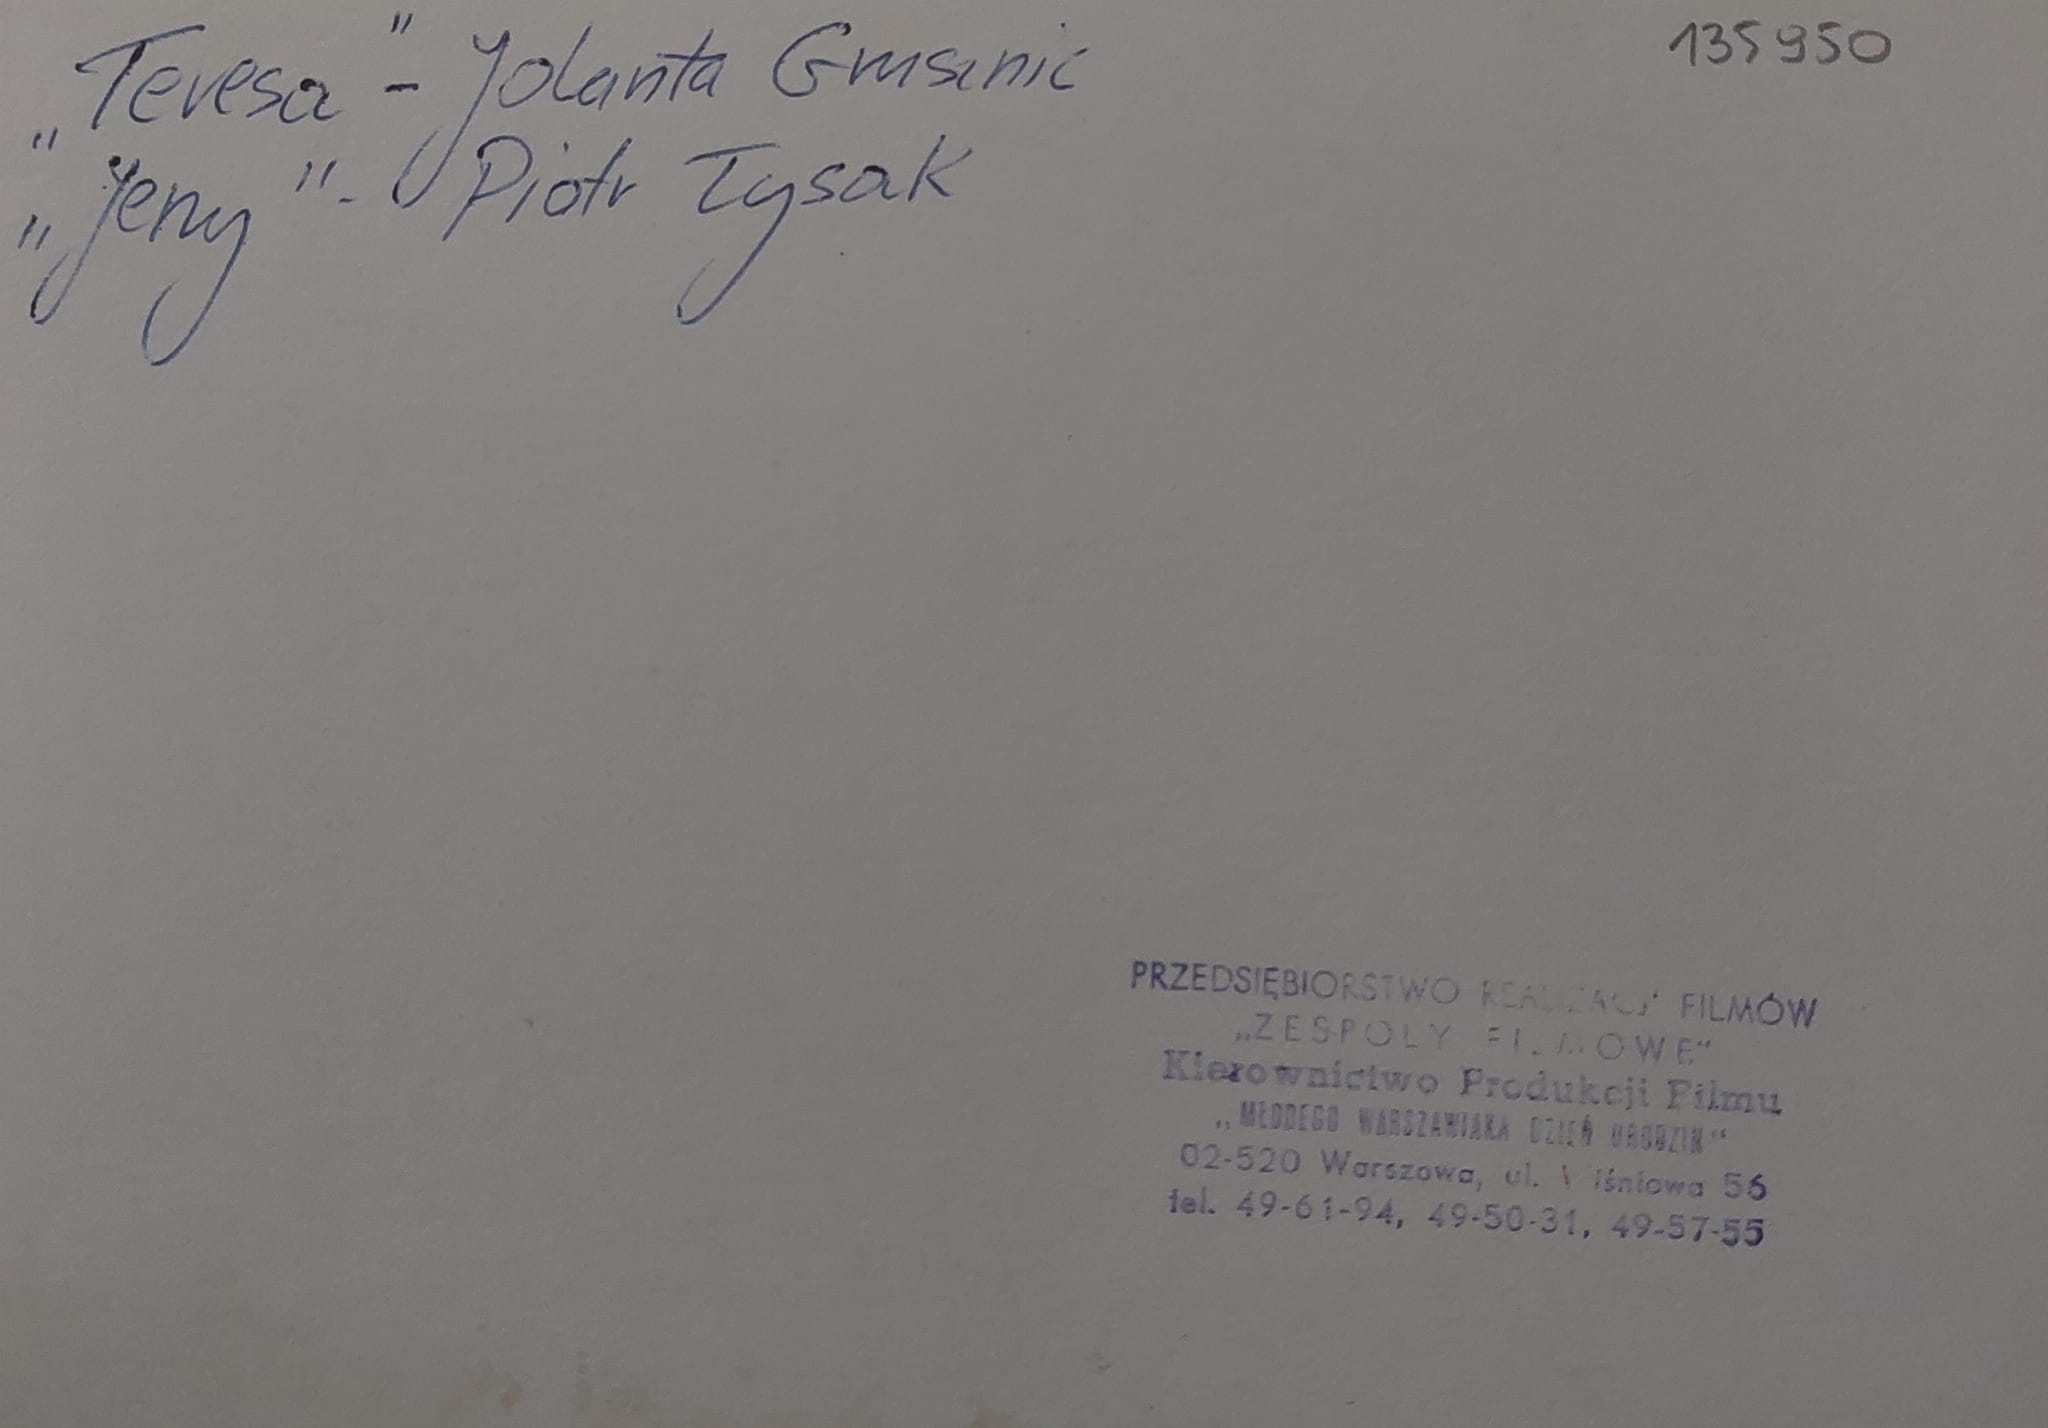 „Teresa" - Jolanta Grusznic
135950
„Jerzy" - Piotr Łysak
PRZEDSIĘBIORSTWO REALIZACJI FILMÓW
„ZESPOŁY FILMOWE"
Kierownictwo Produkcji Filmu
„MŁODEGO WARSZAWIAKA DZIEŃ URODZIN"
02-520 Warszawa, ul. Wiśniowa 56
tel. 49-61-94, 49-50-31, 49-57-55